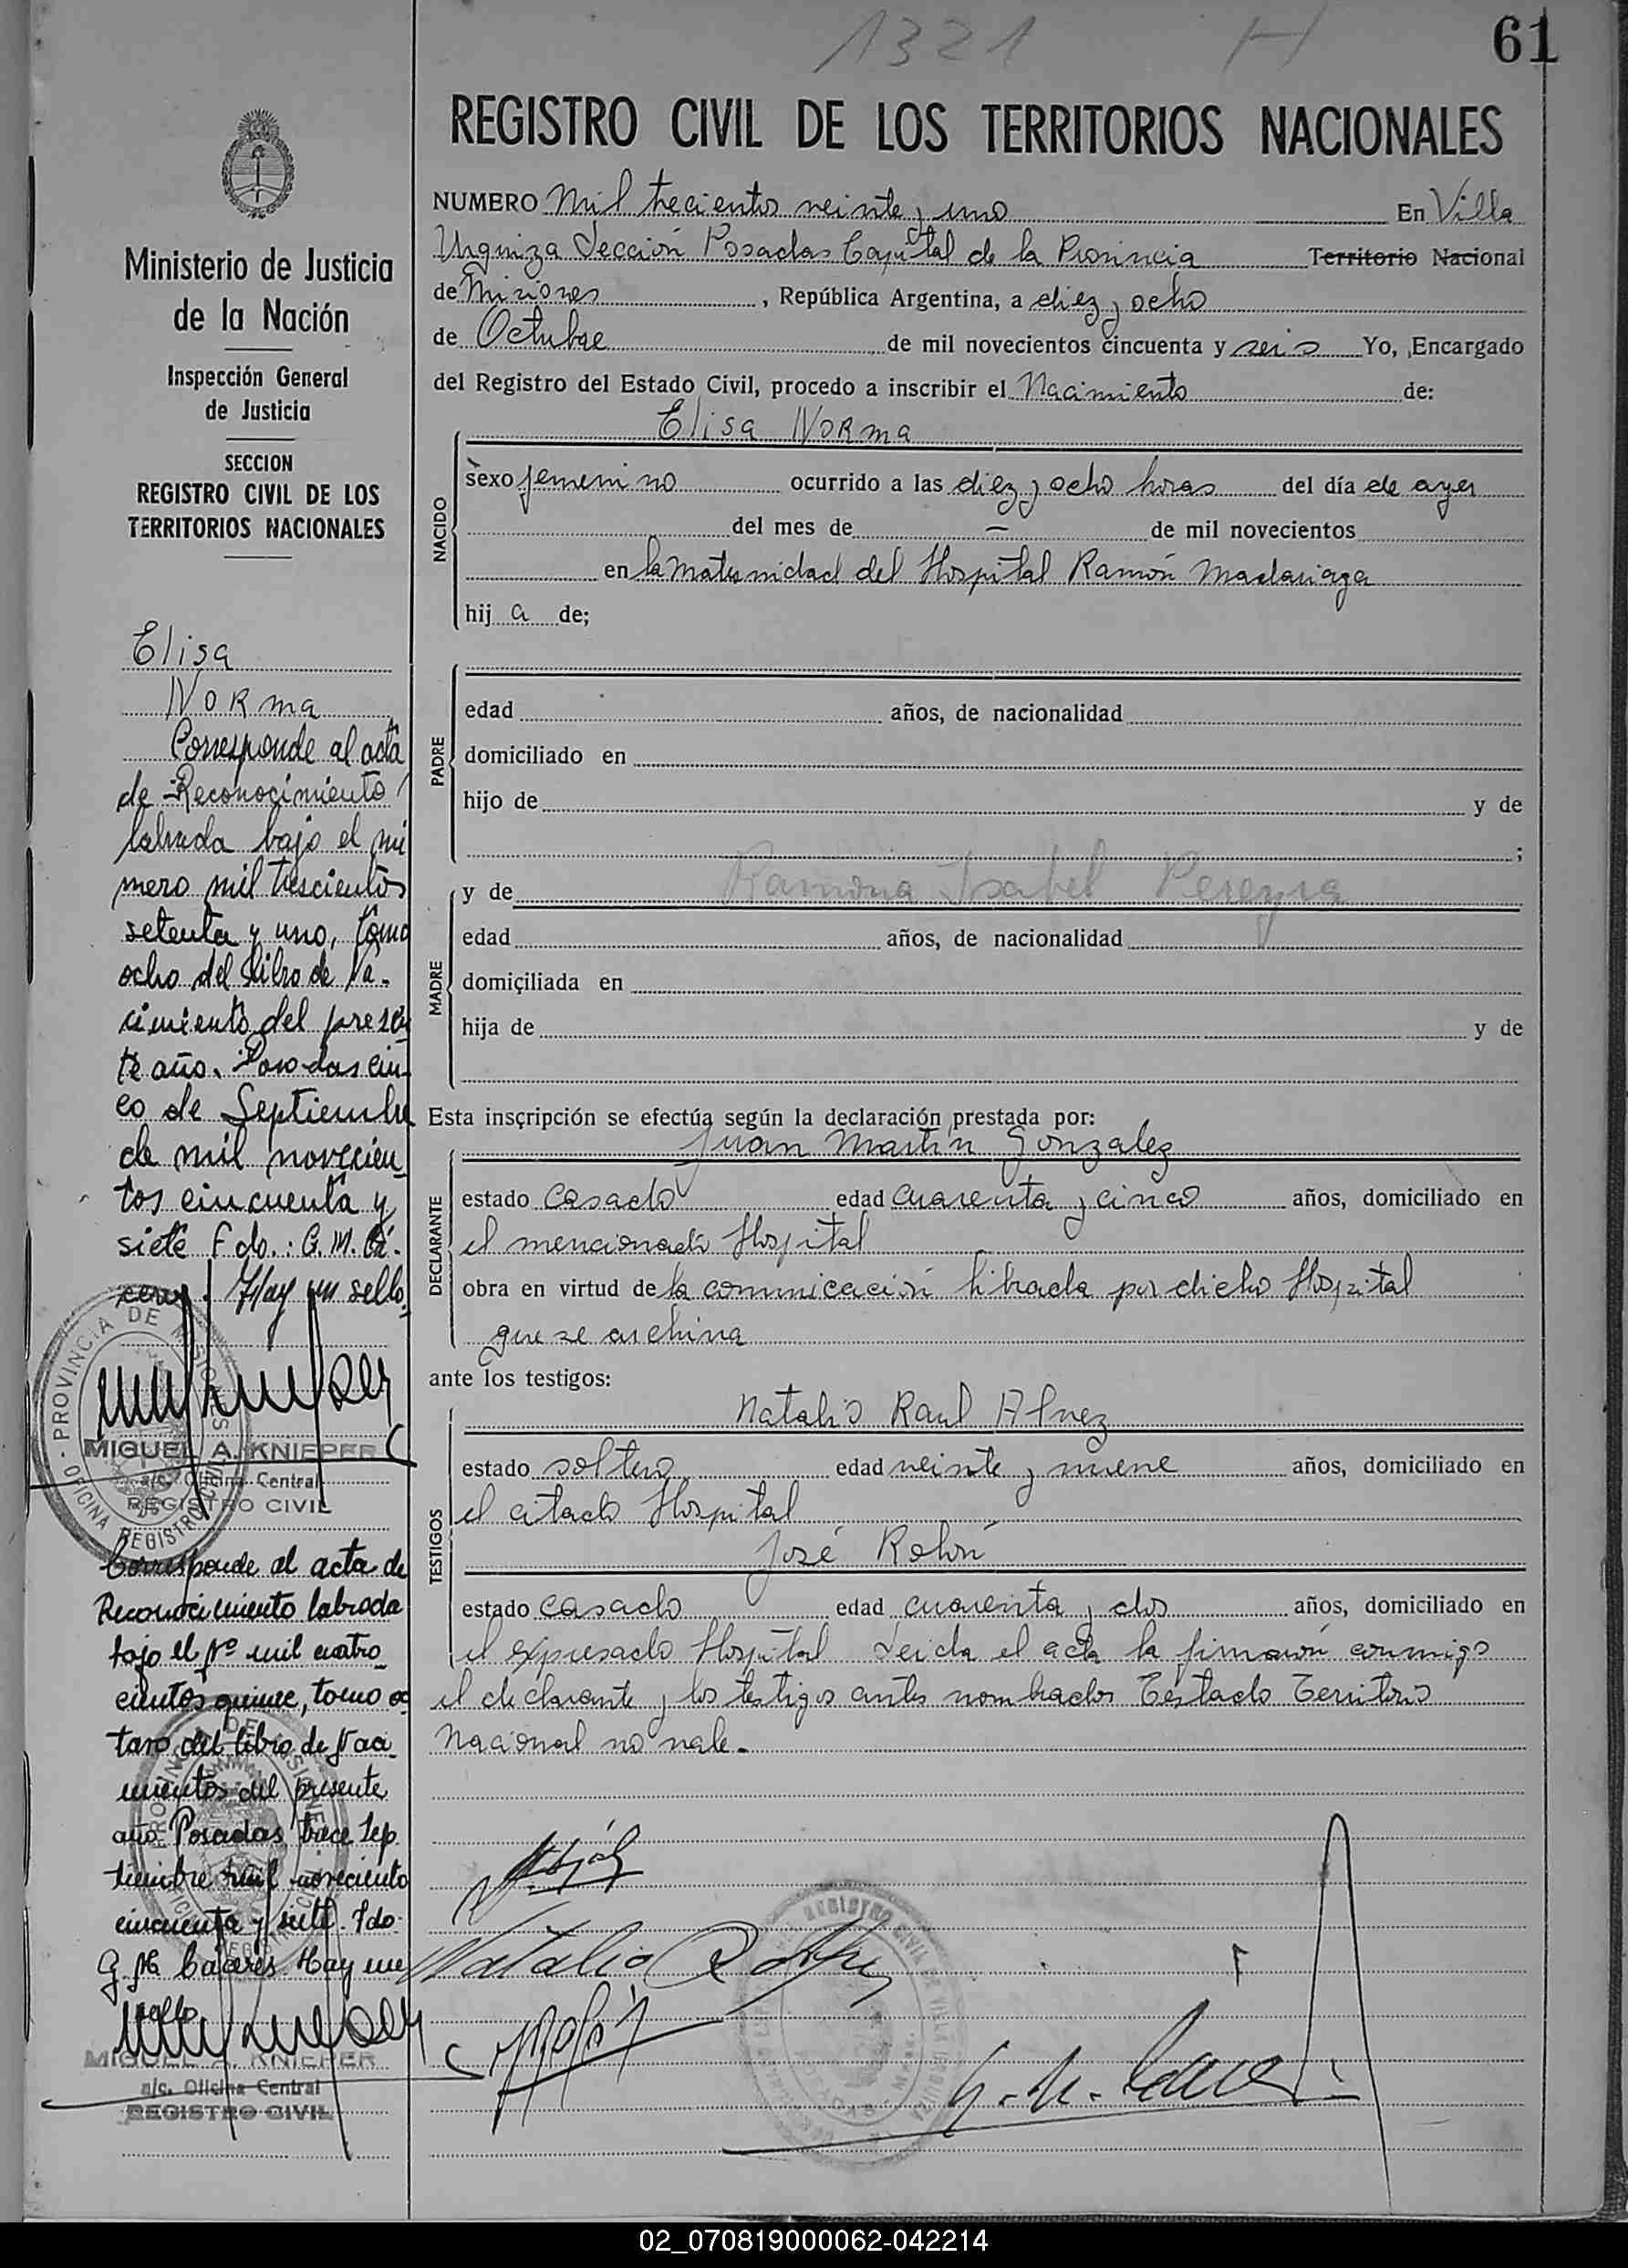 1321 H
61
REGISTRO CIVIL DE LOS TERRITORIOS NACIONALES
Ministerio de Justicia
de la Nación
Inspección General
de Justicia
SECCION
REGISTRO CIVIL DE LOS
TERRITORIOS NACIONALES
Elisa
Norma
Corresponde al acta
de Reconocimiento
labrada bajo el nú
mero mil trescientos
setenta y uno, tomo
ocho del Libro de Na-
cimiento del presen
te año. Posadas cin-
co de Septiembre
de mil novecien
tos cincuenta y
siete Fdo.: G. M. Cá-
ceres. Hay un sello.
PROVINCIA DE MISIONES
OFICINA REGISTRO CIVIL
MIGUEL A. KNIEPER
a/c. Oficina Central
REGISTRO CIVIL
Corresponde al acta de
Reconocimiento labrada
bajo el Nº mil cuatro
cientos quince, tomo oc
tavo del libro de Naci
mientos del presente
año Posadas trece Sep
tiembre mil novecientos
cincuenta y siete. Fdo.
G. M. Cáceres. Hay un
sello
MIGUEL A. KNIEPER
a/c. Oficina Central
REGISTRO CIVIL
NUMERO Mil trecientos veinte y uno En Villa
Urquiza Sección Posadas Capital de la Provincia Territorio Nacional
de Misiones, República Argentina, a diez y ocho
de Octubre de mil novecientos cincuenta y seis Yo, Encargado
del Registro del Estado Civil, procedo a inscribir el Nacimiento de:
Elisa Norma
NACIDO
sexo femenino ocurrido a las diez y ocho horas del día de ayer
del mes de — de mil novecientos
en la Maternidad del Hospital Ramón Madariaga
hij a de;
PADRE
edad años, de nacionalidad
domiciliado en
hijo de y de
;
MADRE
y de Ramona Isabel Pereyra
edad años, de nacionalidad
domiciliada en
hija de y de
Esta inscripción se efectúa según la declaración prestada por:
DECLARANTE
Juan Martín Gonzalez
estado Casado edad cuarenta y cinco años, domiciliado en
el mencionado Hospital
obra en virtud de la comunicación librada por dicho Hospital
que se archiva
ante los testigos:
TESTIGOS
Natalio Raul Alvez
estado soltero edad veinte y nueve años, domiciliado en
el citado Hospital
José Rolón
estado casado edad cuarenta y dos años, domiciliado en
el expresado Hospital Leida el acta la firmaron conmigo
el declarante y los testigos antes nombrados Testado Territorio
Nacional no vale.-
Natalio R Alvez
J Rolón
G. M. Cáceres
02_070819000062-042214